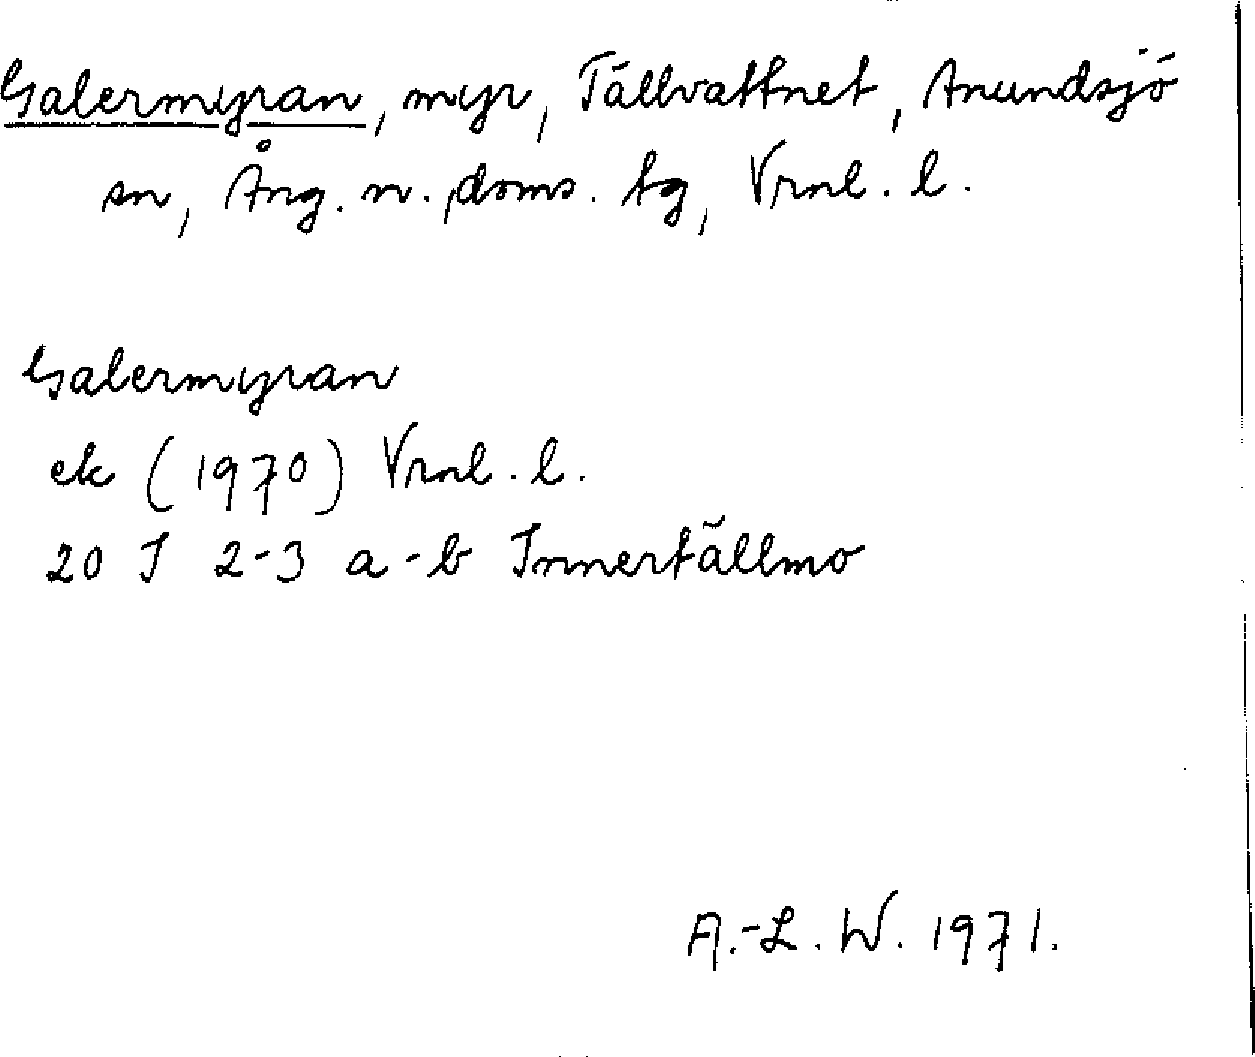 Galermyran, myr, Tällvattnet, Anundsjö
sn, Ång. n. doms. tg, Vrnl. l.
Galermyran
ek (1970) Vrnl. l.
20 J 2-3 a-b Innertällmo
A.-L. W. 1971.